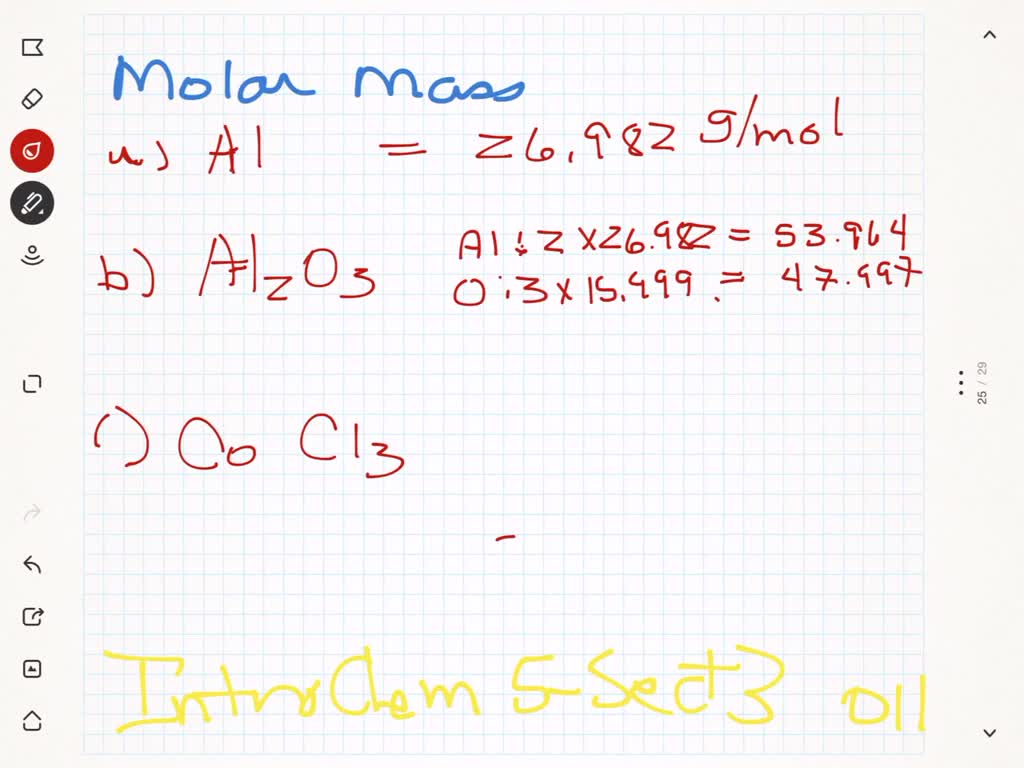 Molar Mass
a) Al = 26.982 g/mol
b) Al2O3
Al: 2 x 26.982 = 53.964
O: 3 x 15.999 = 47.997
c) CoCl3
-
Intro Chem 5-Sect 3 011
25 / 29